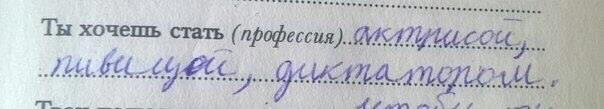 Ты хочешь стать (профессия) актрисой,
пивицой, диктатором.